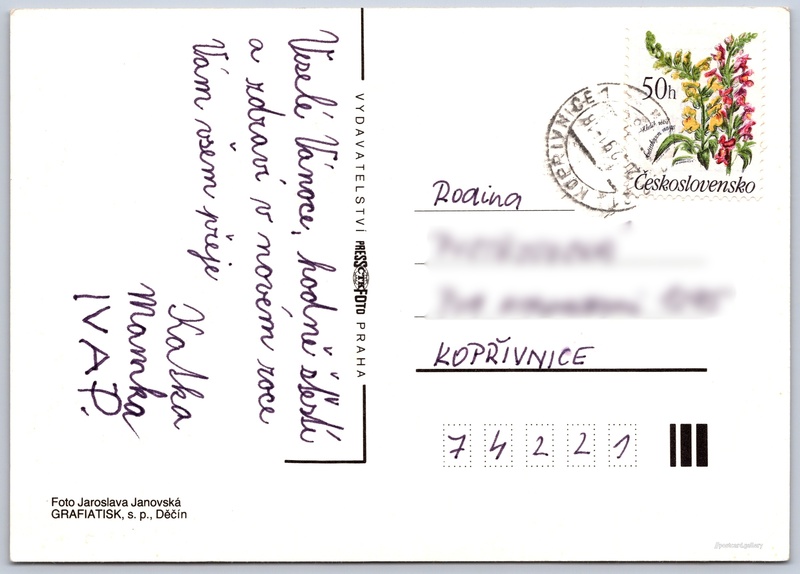 Veselé Vánoce, hodně štěstí
a zdraví v novém roce
Vám všem přeje
Katka
Mamka
IVA P.
VYDAVATELSTVÍ PRESSFOTO PRAHA
50h
Československo
KOPŘIVNICE 1
Rodina
KOPŘIVNICE
74221
Foto Jaroslava Janovská
GRAFIATISK, s. p., Děčín
//postcard.gallery